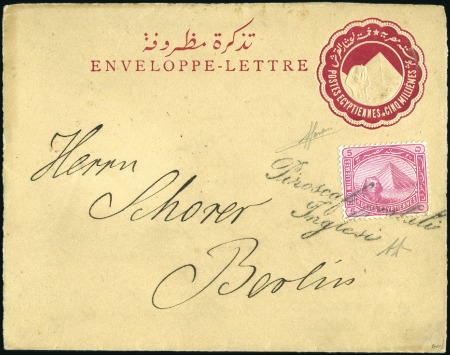 تذكرة مظروفة
ENVELOPPE-LETTRE
POSTES EGYPTIENNES
CINQ MILLIEMES
Herrn
Schorer
Berlin
Piroscafi Postali
Inglesi